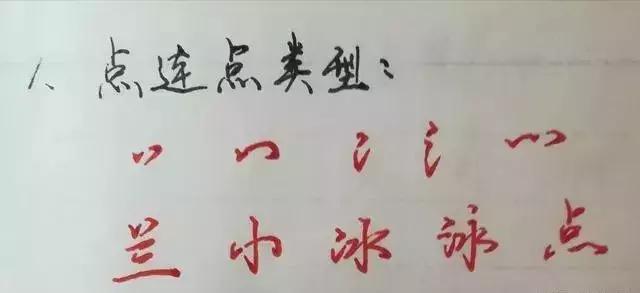 1、点连点类型：
兰小冰泳点